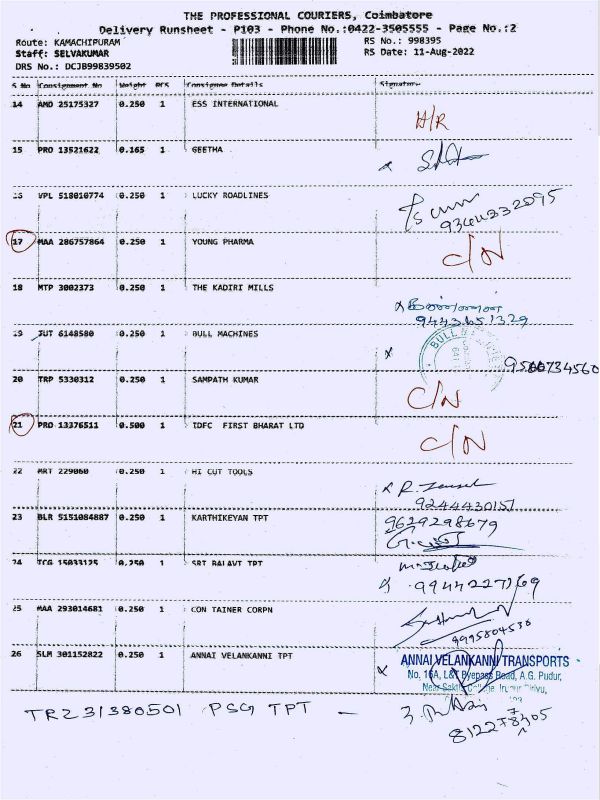 THE PROFESSIONAL COURIERS, Coimbatore
Delivery Runsheet - P103 - Phone No.:0422-3505555 - Page No.:2
Route: KAMACHIPURAM RS No.: 998395
Staff: SELVAKUMAR RS Date: 11-Aug-2022
DRS No.: DCJB99839502
S No Consignment No Weight PCS Consignee Details Signature
14 AMD 25175327 0.250 1 ESS INTERNATIONAL H/R
15 PRO 13521622 0.165 1 GEETHA x
16 VPL 518010774 0.250 1 LUCKY ROADLINES
9344332095
17 MAA 286757864 0.250 1 YOUNG PHARMA C/N
18 MTP 3002373 0.250 1 THE KADIRI MILLS x
9443651329
19 JUT 6148580 0.250 1 BULL MACHINES x BULL
20 TRP 5330312 0.250 1 SAMPATH KUMAR C/N
21 PRO 13376511 0.500 1 IDFC FIRST BHARAT LTD C/N
22 MRT 229060 0.250 1 HI CUT TOOLS x R.
9244430151
23 BLR 5151084887 0.250 1 KARTHIKEYAN TPT 9629298679
24 TCG 15033125 0.250 1 SRI BALAVI TPT
25 MAA 293014681 0.250 1 CON TAINER CORPN
9995804538
26 SLM 301152822 0.250 1 ANNAI VELANKANNI TPT x
ANNAI VELANKANNI TRANSPORTS
No. 16A, L&T Byepass Road, A.G. Pudur,
TRZ31380501 PSG TPT -